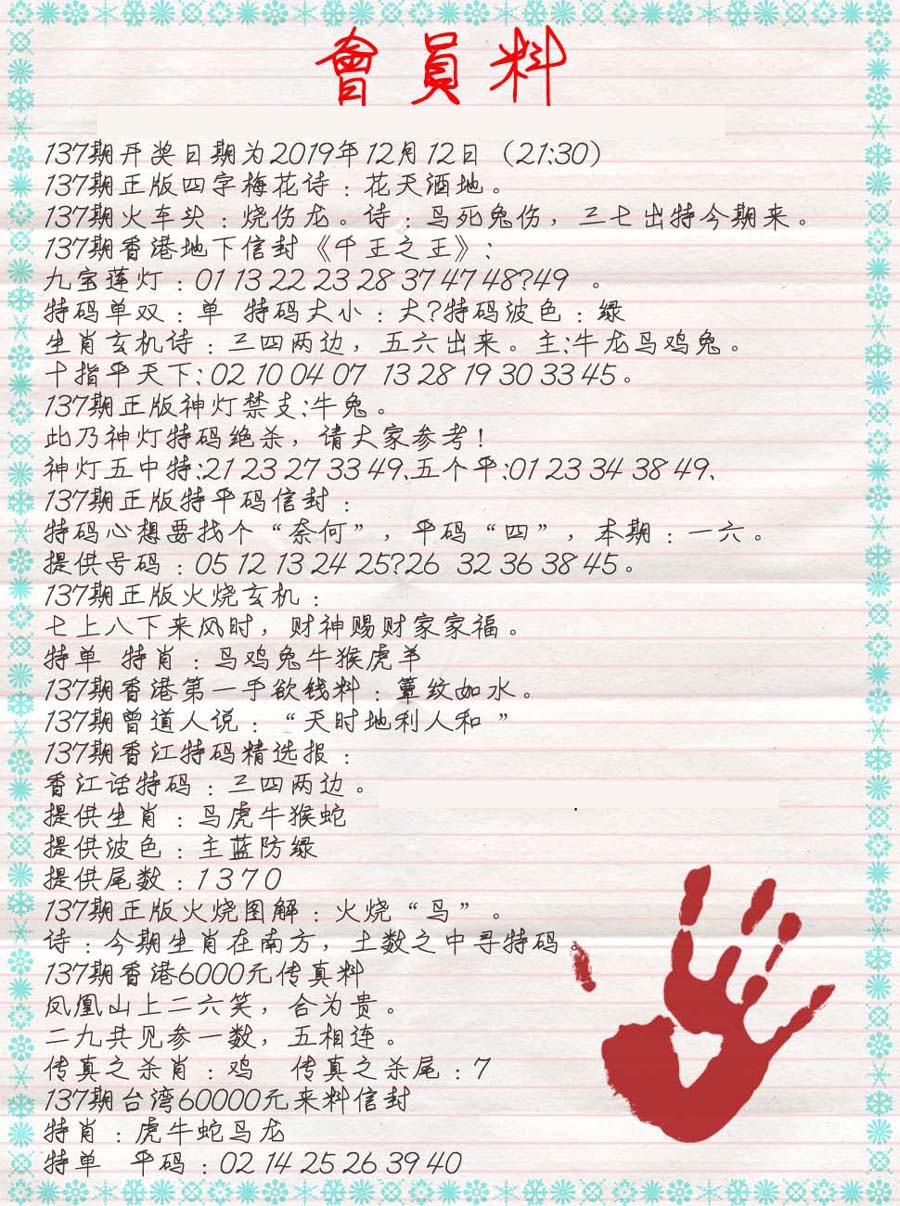 會員料
137期开奖日期为2019年12月12日（21:30）
137期正版四字梅花诗：花天酒地。
137期火车头：烧伤龙。诗：鸟死兔伤，三七出特今期来。
137期香港地下信封《千王之王》：
九宝莲灯：01 13 22 23 28 37 47 48?49 。
特码单双：单 特码大小：大?特码波色：绿
生肖玄机诗：三四两边，五六出来。主:牛龙马鸡兔。
十指平天下:02 10 04 07 13 28 19 30 33 45。
137期正版神灯禁支:牛兔。
此乃神灯特码绝杀，请大家参考!
神灯五中特:21 23 27 33 49、五个平:01 23 34 38 49、
137期正版特平码信封：
特码心想要找个“奈何”，平码“四”，本期：一六。
提供号码：05 12 13 24 25?26 32 36 38 45。
137期正版火烧玄机：
七上八下来风时，财神赐财家家福。
特单 特肖：马鸡兔牛猴虎羊
137期香港第一手欲钱料：簟纹如水。
137期曾道人说：“天时地利人和 ”
137期香江特码精选报：
香江话特码：三四两边。
提供生肖：马虎牛猴蛇
提供波色：主蓝防绿
提供尾数：1 3 7 0
137期正版火烧图解：火烧“鸟”。
诗：今期生肖在南方，土数之中寻特码。
137期香港6000元传真料
凤凰山上二六笑，合为贵。
二九共见参一数，五相连。
传真之杀肖：鸡 传真之杀尾：7
137期台湾60000元来料信封
特肖：虎牛蛇马龙
特单 平码：02 14 25 26 39 40